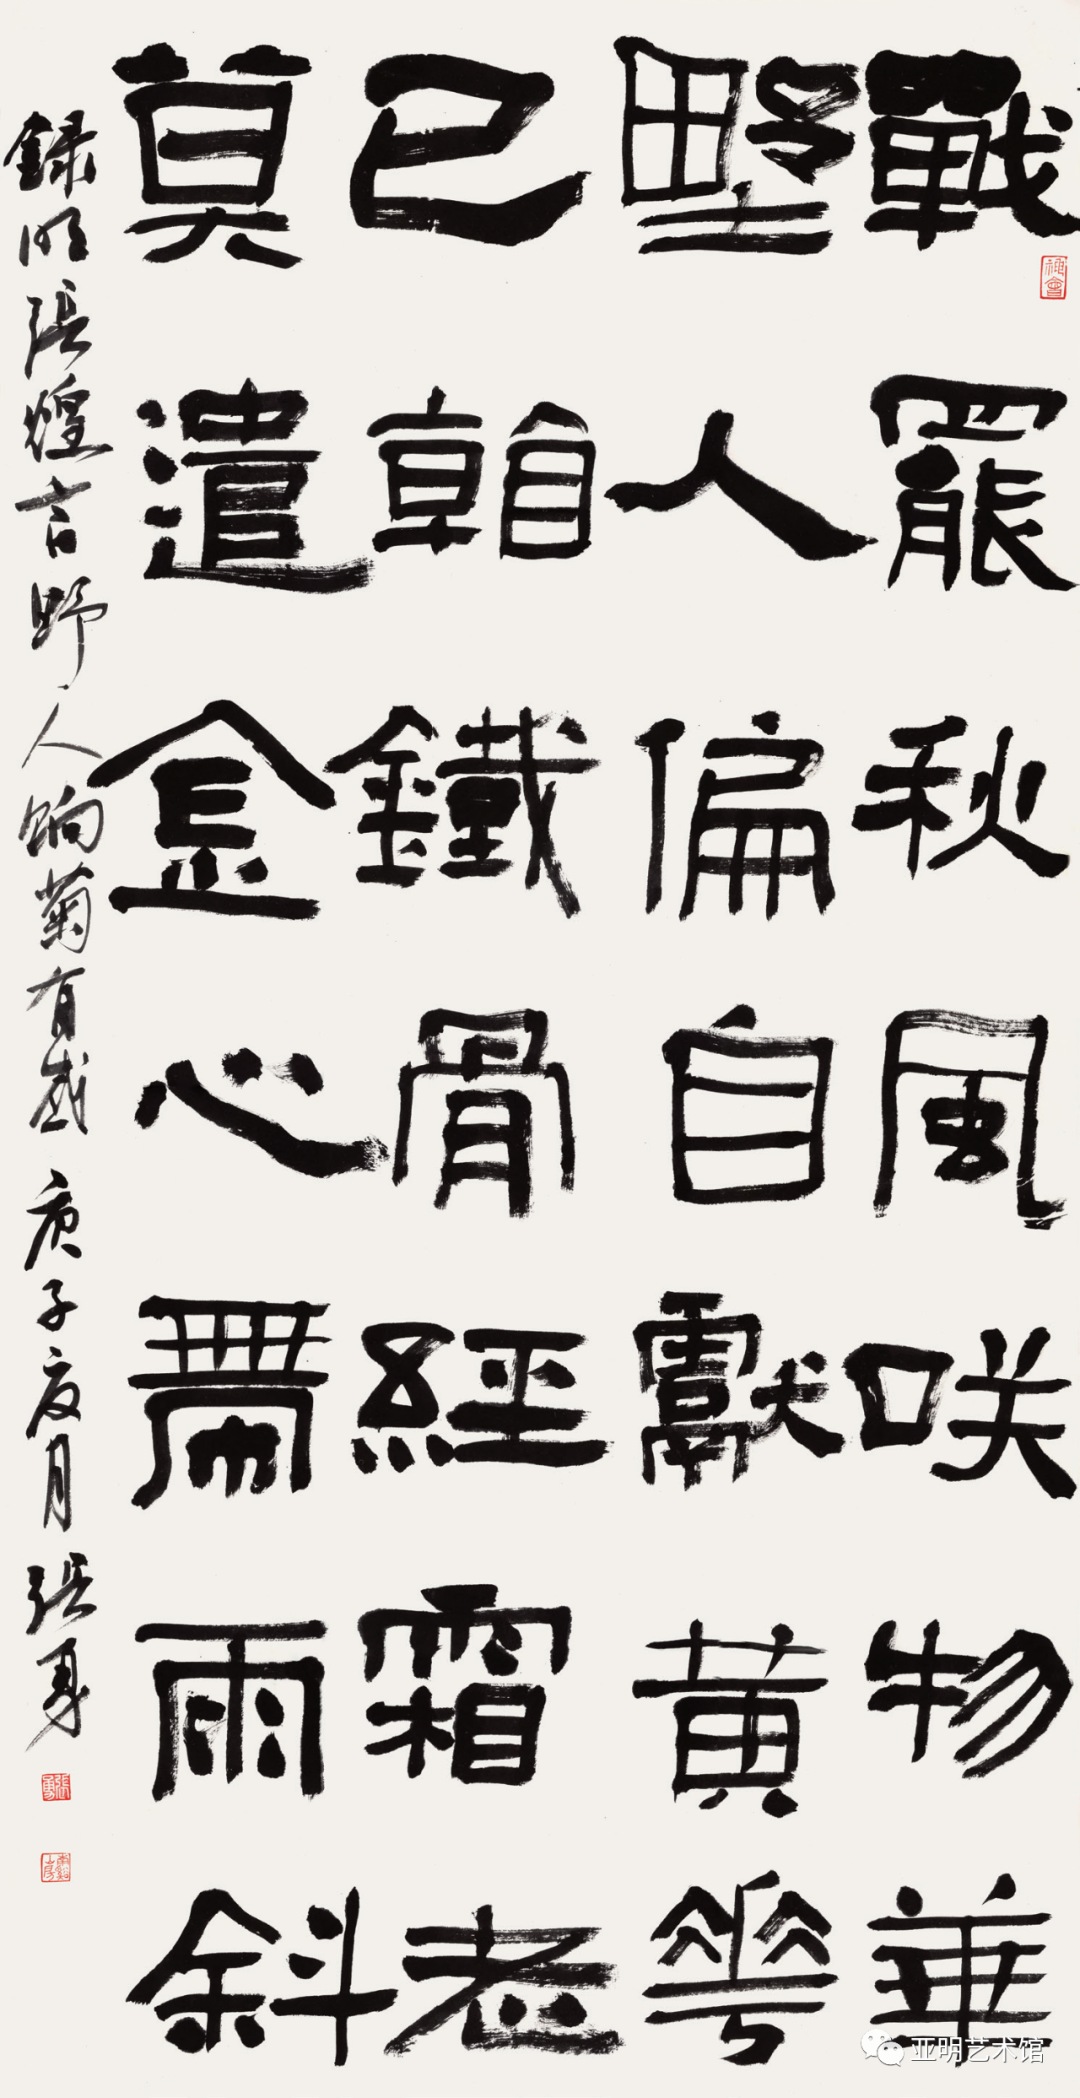 戰罷秋風咲物華
野人偏自獻黃華
已朝鐵骨經霜老
莫遣金心帶雨斜
錄明張煌言野人餉菊有感 庚子夏月 張勇
張勇
亚明艺术馆